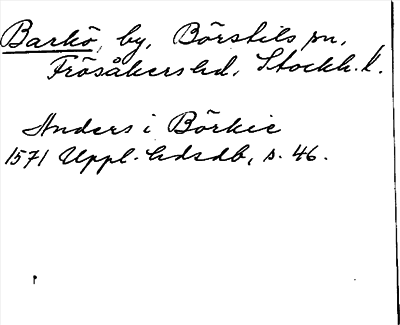 Barkö, by, Börstils sn,
Frösåkers hd, Stockh. l.
Anders i Börkie
1571 Uppl. hdsdb, s. 46.